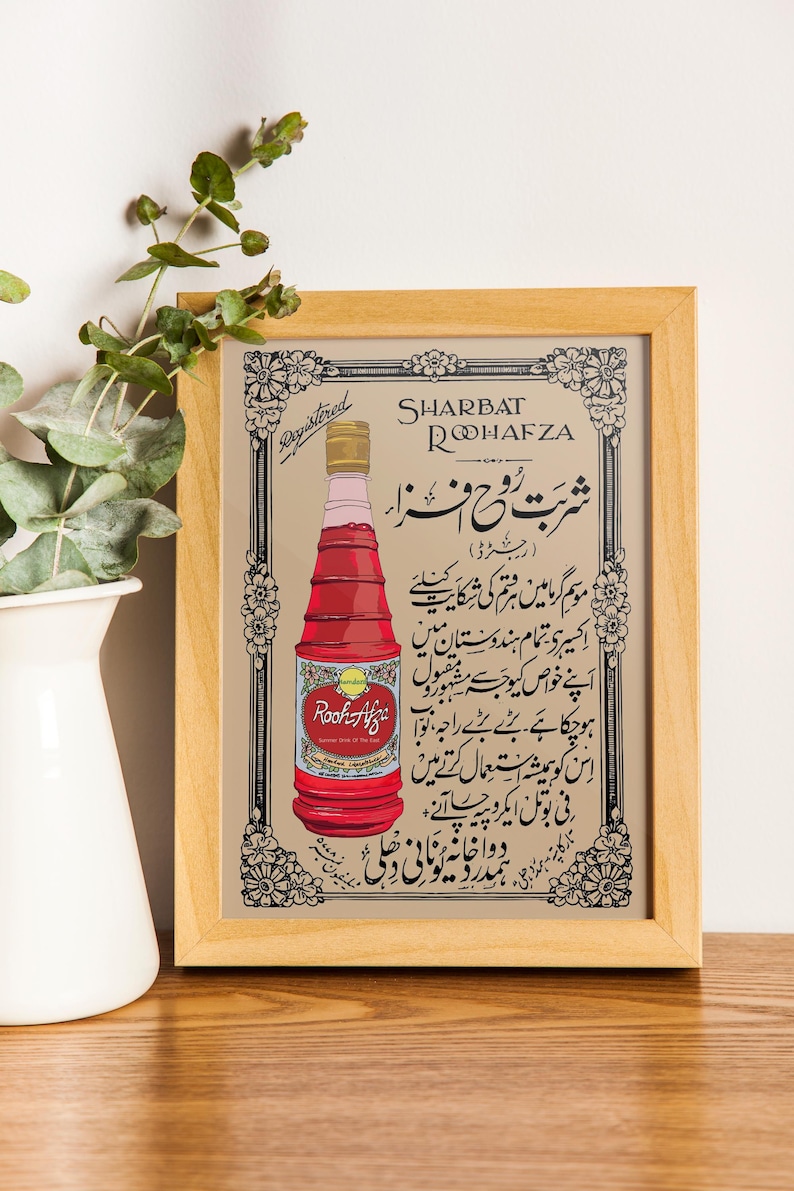 Registered
SHARBAT
ROOHAFZA
شربت روح افزاء
(رجسٹرڈ)
موسم گرما میں ہر قسم کی شکایت کیلئے
اکسیر ہے۔ تمام ہندوستان میں
اپنے خواص کیوجہ سے مشہور و مقبول
ہو چکا ہے۔ بڑے بڑے راجہ، نواب
اس کو ہمیشہ استعمال کرتے ہیں
فی بوتل ایکروپیہ چار آنے
ہمدرد دواخانہ یونانی دھلی
ٹیلیفون نمبر ۵۵۷۸
Hamdard
Rooh Afza
Summer Drink Of The East